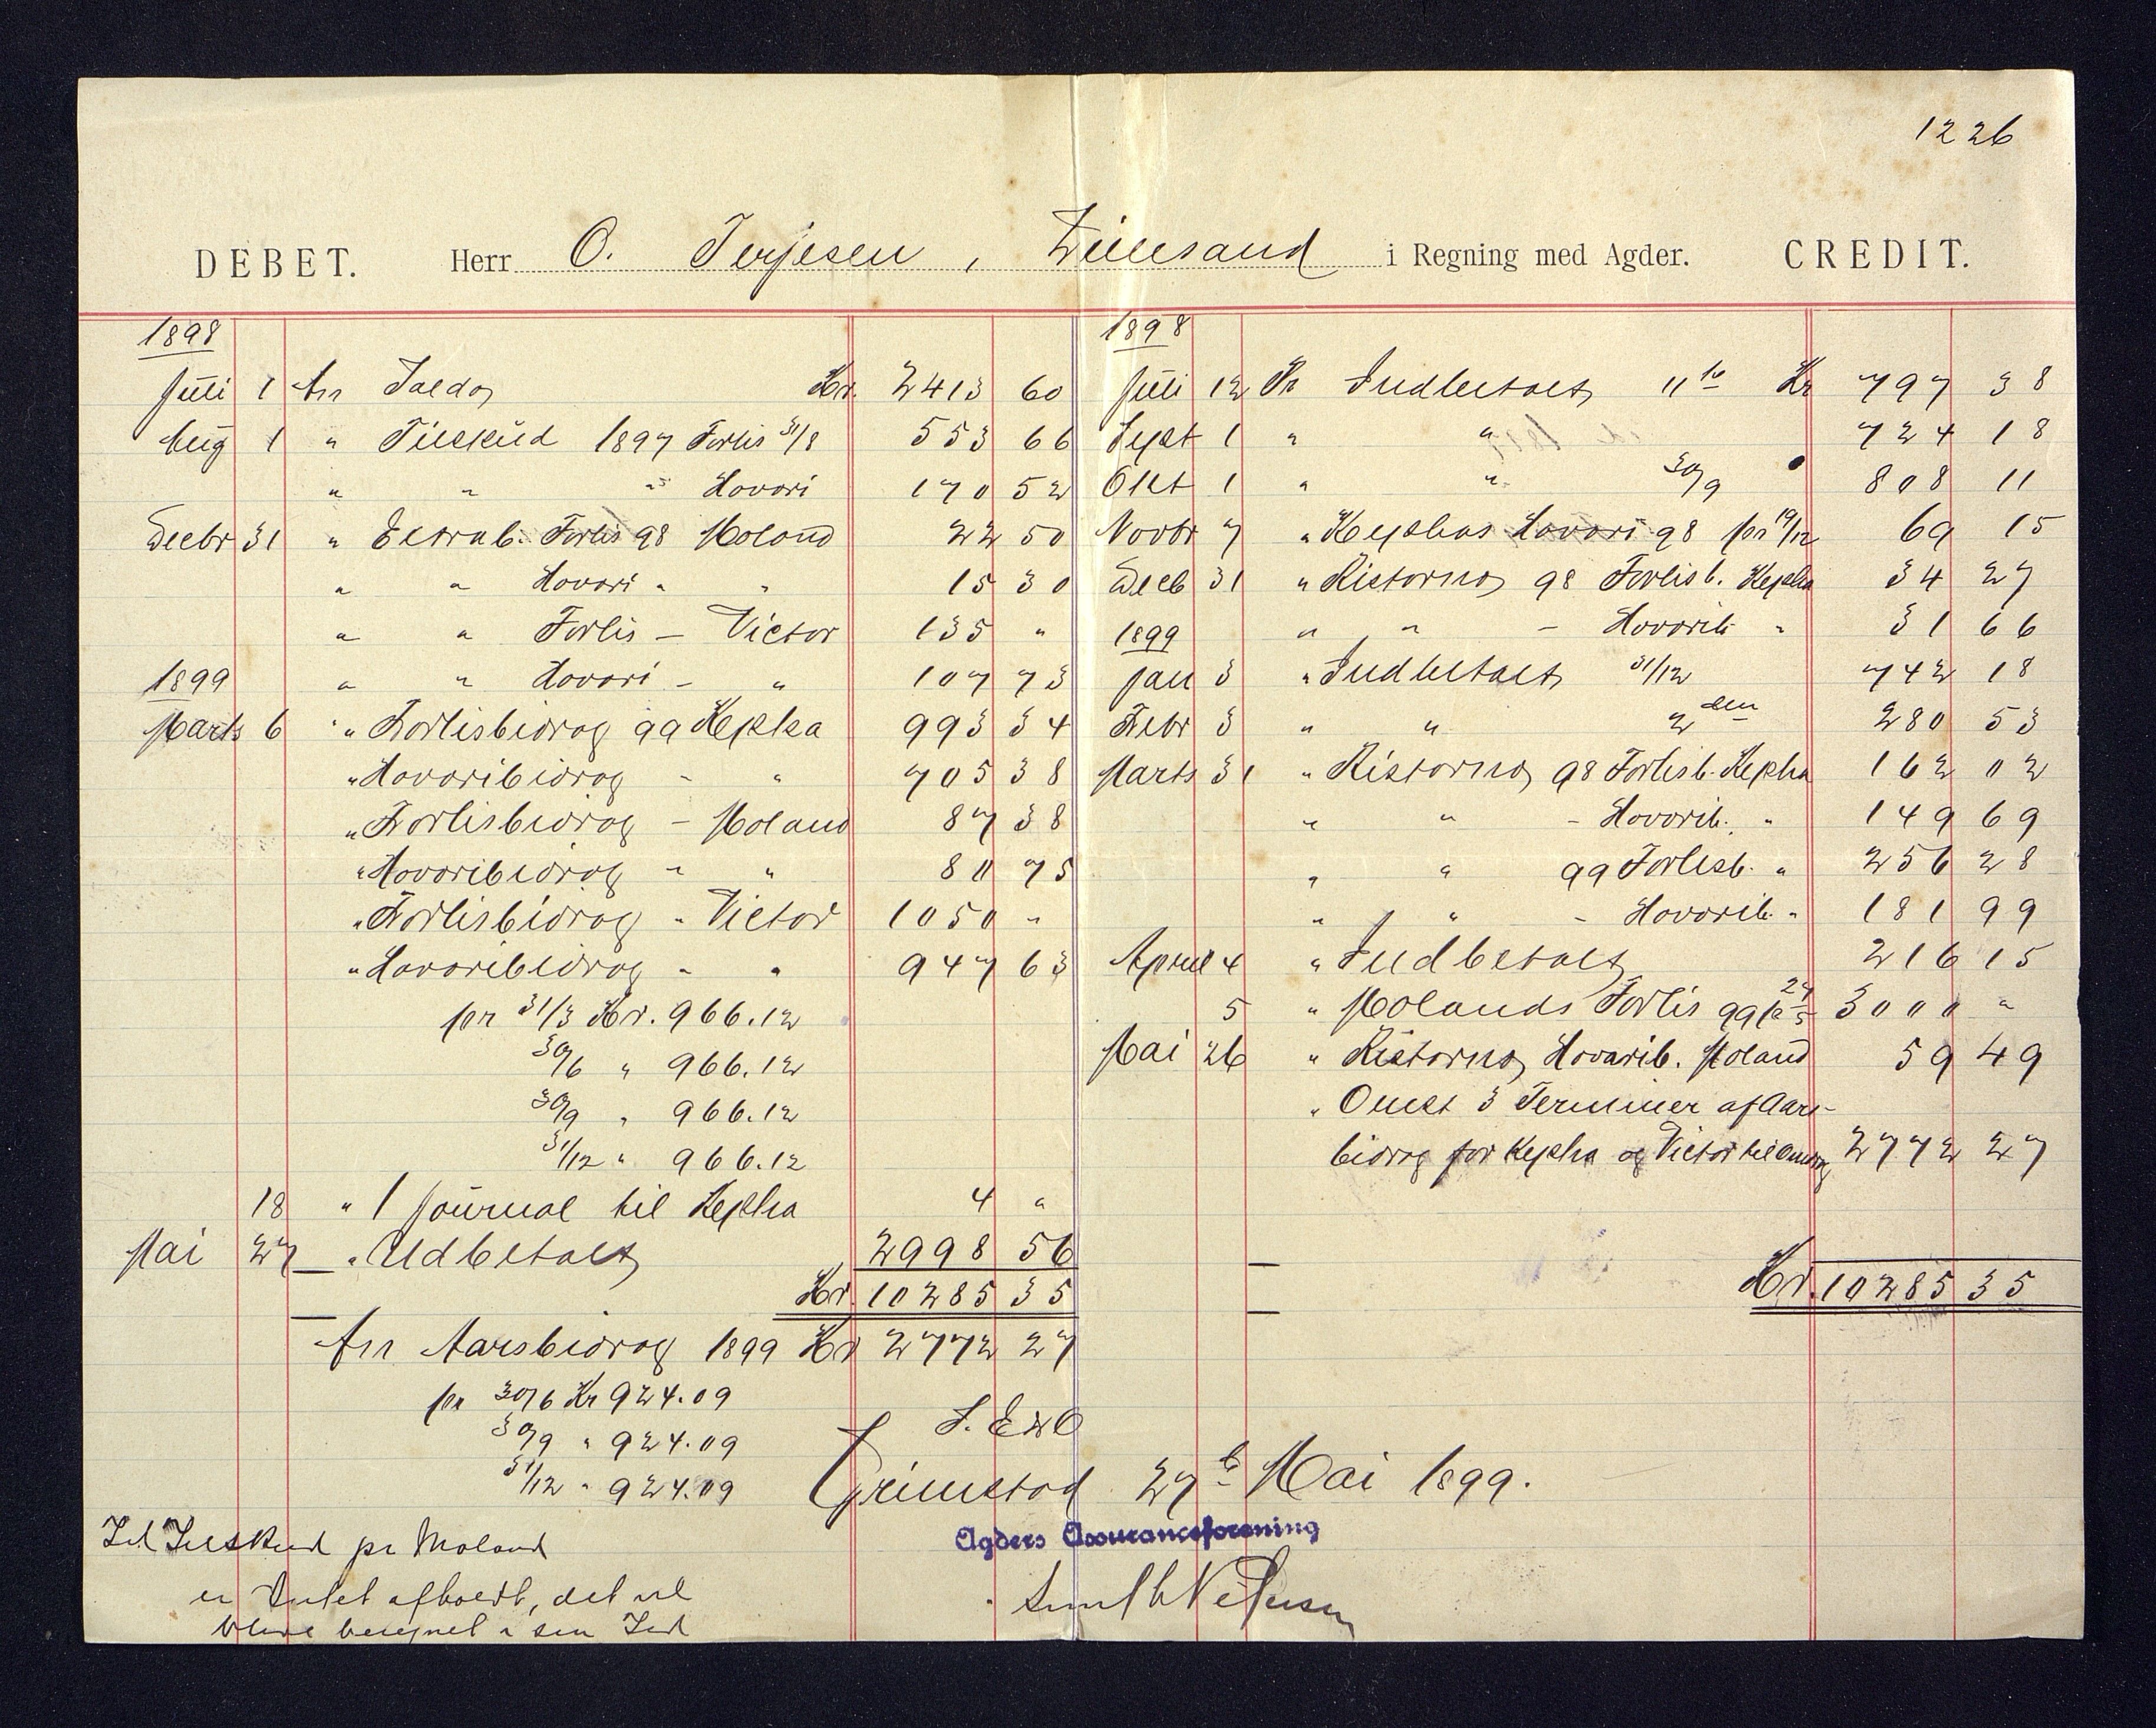 1226
DEBET. Herr O. Terjesen, Lillesand i Regning med Agder. CREDIT.
1898
Juli 1 An Saldo Kr. 2413 60
Aug 1 " Tilskud 1897 Forlis 31/8 553 66
" " " Havari 170 52
Decbr 31 " Extrab. Forlis 98 Moland 22 50
" " Havari " " 15 30
" " Forlis – Victor 135 "
1899 " " Havari – " 107 73
Marts 6 " Forlisbidrag 99 Kepha 993 34
" Havaribidrag – " 705 38
" Forlisbidrag – Moland 87 38
" Havaribidrag – " 80 75
" Forlisbidrag " Victor 1050 "
" Havaribidrag " " 947 63
pr 31/3 Kr. 966.12
30/6 " 966.12
30/9 " 966.12
31/12 " 966.12
18 " 1 Journal til Kepha 4 "
Mai 27 " Udbetalt 2998 56
Kr. 10285 35
An Aarsbidrag 1899 Kr 2772 27
pr 30/6 Kr 924.09
30/9 " 924.09
31/12 " 924.09
1898
Juli 12 Pr Indbetalt 11te Kr 797 38
Sept 1 " " 724 18
Okt 1 " " 30/9 808 11
Novbr 7 " Kephas Havari 98 pr 19/12 69 15
Decb 31 " Ristorno 98 Forlisb. Kepha 34 27
1899 " " – Havarib " 31 66
Jan 3 " Indbetalt 31/12 742 18
Febr 3 " " 2den 280 53
Marts 31 " Ristorno 98 Forlisb. Kepha 162 02
" " – Havarib. " 149 69
" " 99 Forlisb. " 256 28
" " – Havarib. " 181 99
April 4 " Indbetalt 216 15
5 " Molands Forlis 99 27/5 3000 "
Mai 26 " Ristorno Havarib. Moland 59 49
" Omst 3 Terminer af Aars-
bidrag for Kepha og Victor til 2772 27
Kr. 10285 35
S. E & O
Grimstad 27de Mai 1899.
Agders Assuranceforening
Til Tilskud pr Moland
er Intet afholdt, det vil
blive beregnet i sin Tid